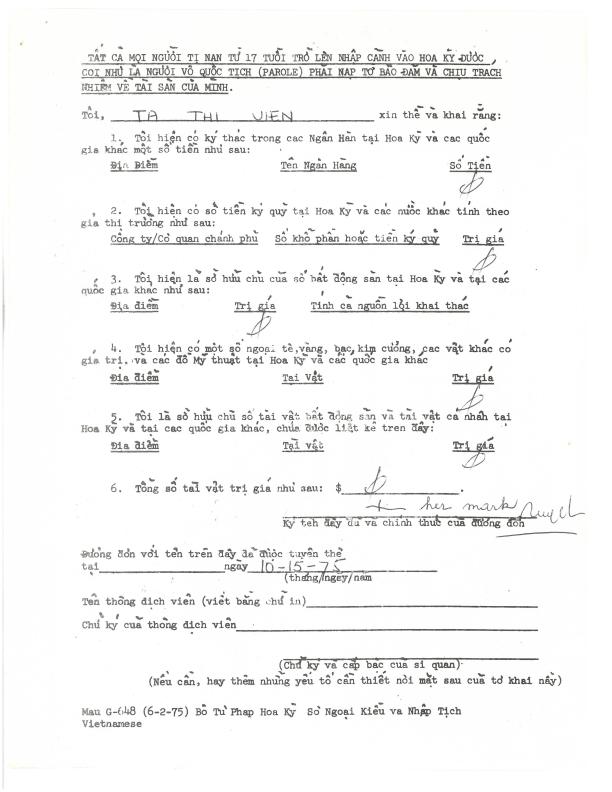 TẤT CẢ MỌI NGƯỜI TỊ NẠN TỪ 17 TUỔI TRỞ LÊN NHẬP CẢNH VÀO HOA KỲ ĐƯỢC
COI NHƯ LÀ NGƯỜI VÔ QUỐC TỊCH (PAROLE) PHẢI NẠP TỜ BẢO ĐẢM VÀ CHỊU TRACH
NHIỆM VỀ TÀI SẢN CỦA MÌNH.
Tôi, TA THI VIEN xin thề và khai rằng:
1. Tôi hiện có ký thác trong các Ngân Hàn tại Hoa Kỳ và các quốc
gia khác một số tiền như sau:
Địa Điểm Tên Ngân Hàng Số Tiền
2. Tôi hiện có số tiền ký quỹ tại Hoa Kỳ và các nước khác tính theo
gía thị trường như sau:
Công ty/Cơ quan chánh phủ Số khổ phần hoặc tiền ký quỹ Trị giá
3. Tôi hiện là sở hữu chủ của số bất động sản tại Hoa Kỳ và tại các
quốc gia khác như sau:
Địa điểm Trị giá Tính cả nguồn lợi khai thác
4. Tôi hiện có một số ngoại tệ,vàng, bạc,kim cương, các vật khác có
gía trị. và các đồ Mỹ thuật tại Hoa Kỳ và các quốc gia khác
Địa điểm Tài Vật Trị giá
5. Tôi là sở hữu chủ số tài vật bất động sản và tài vật cá nhân tại
Hoa Kỳ và tại các quốc gia khác, chưa được liệt kê trên đây:
Địa điểm Tài vật Trị giá
6. Tổng số tài vật trị giá như sau: $
+ her mark
Ký teh đầy đủ và chính thức của đương đơn
Đương đơn với tên trên đây đã được tuyên thệ
tại ngày 10-15-75
(tháng/ngày/năm
Tên thông dịch viên (viết bằng chữ in)
Chữ ký của thông dịch viên
(Chữ ký và cấp bậc của sĩ quan)
(Nếu cần, hãy thêm những yếu tố cần thiết nơi mặt sau của tờ khai nầy)
Mau G-648 (6-2-75) Bô Tư Phap Hoa Kỳ Sở Ngoại Kiều va Nhập Tịch
Vietnamese